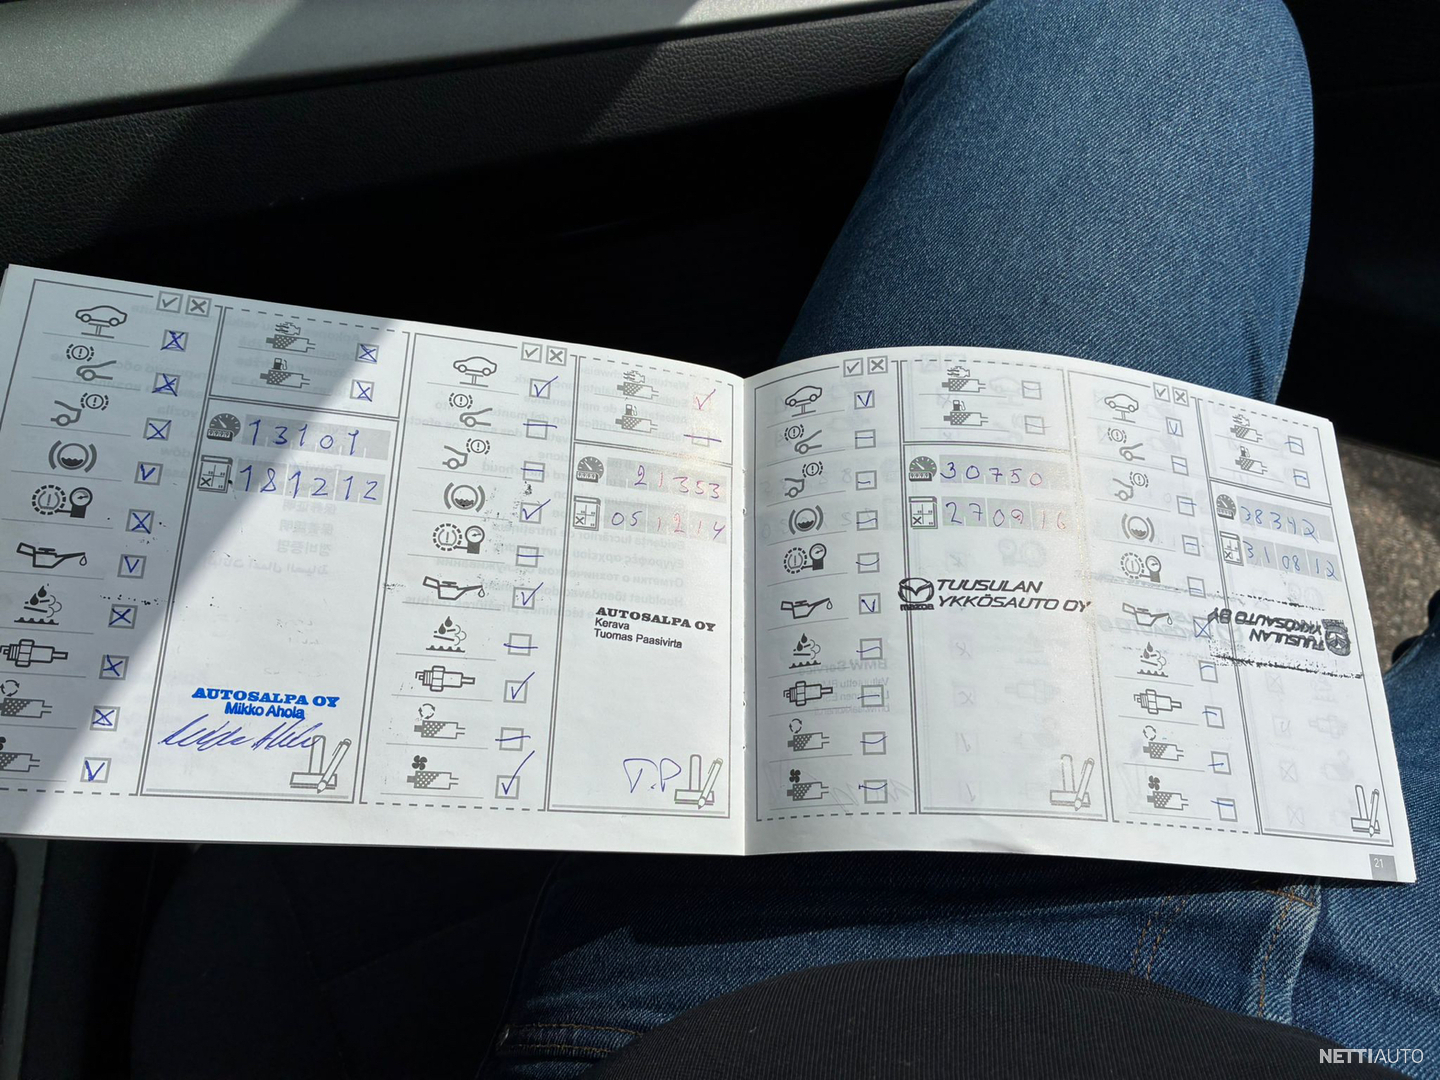 13101
181212
AUTOSALPA OY
Mikko Ahola
21353
051214
AUTOSALPA OY
Kerava
Tuomas Paasivirta
T.P
30750
270916
mazda
TUUSULAN
YKKÖSAUTO OY
38342
TUUSULAN
YKKÖSAUTO OY
21
NETTIAUTO